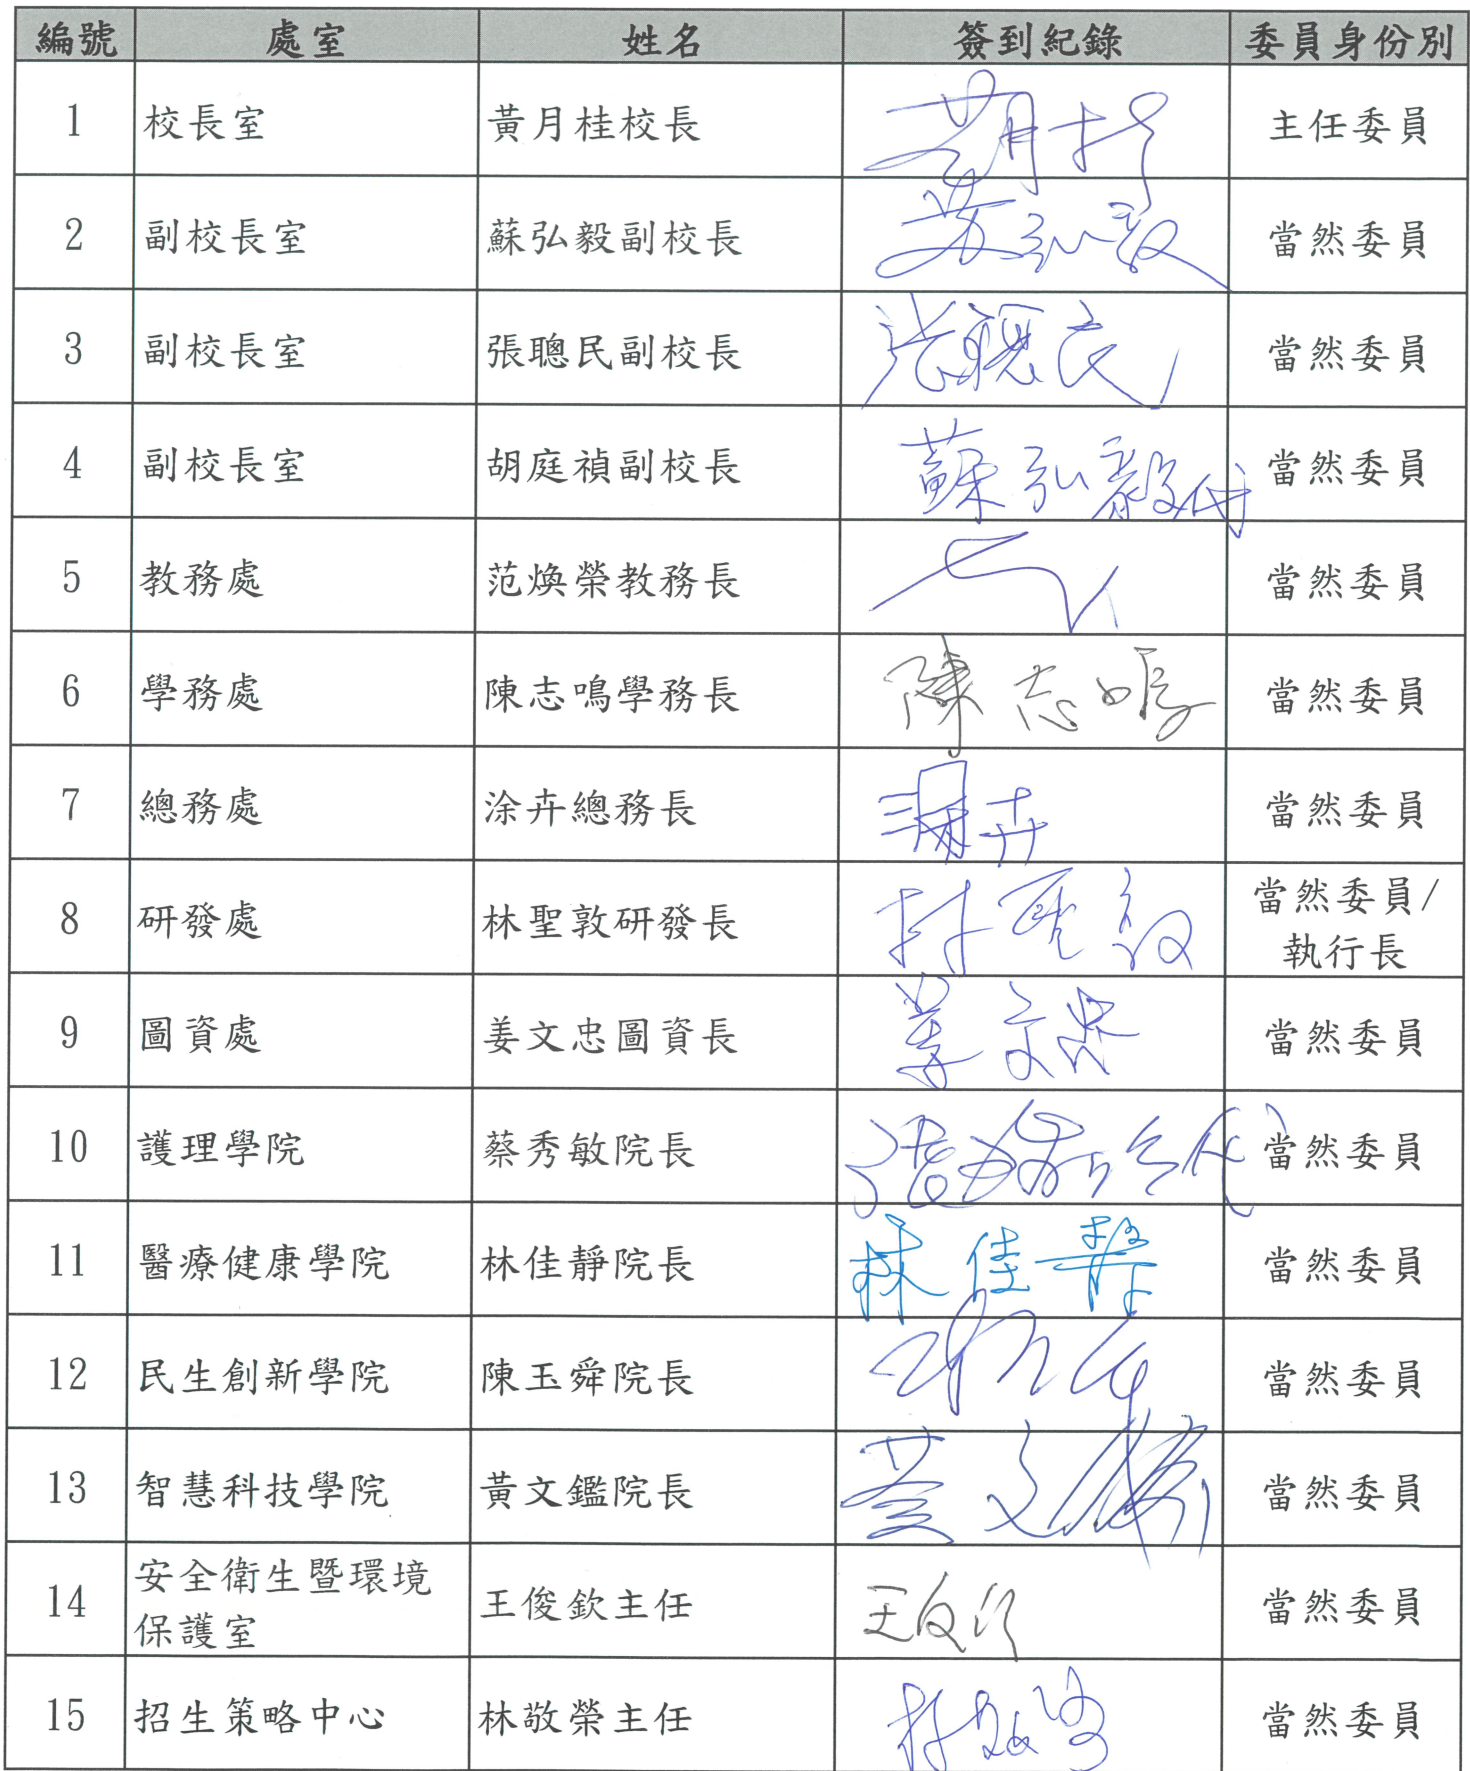 編號 處室 姓名 簽到紀錄 委員身份別
1 校長室 黃月桂校長 主任委員
2 副校長室 蘇弘毅副校長 蘇弘毅 當然委員
3 副校長室 張聰民副校長 張聰民 當然委員
4 副校長室 胡庭禎副校長 蘇弘毅代 當然委員
5 教務處 范煥榮教務長 當然委員
6 學務處 陳志鳴學務長 陳志鳴 當然委員
7 總務處 涂卉總務長 當然委員
8 研發處 林聖敦研發長 林聖敦 當然委員/
執行長
9 圖資處 姜文忠圖資長 姜文忠 當然委員
10 護理學院 蔡秀敏院長 當然委員
11 醫療健康學院 林佳靜院長 林佳靜 當然委員
12 民生創新學院 陳玉舜院長 當然委員
13 智慧科技學院 黃文鑑院長 黃文鑑 當然委員
14 安全衛生暨環境
保護室 王俊欽主任 王俊欽 當然委員
15 招生策略中心 林敬榮主任 林敬榮 當然委員